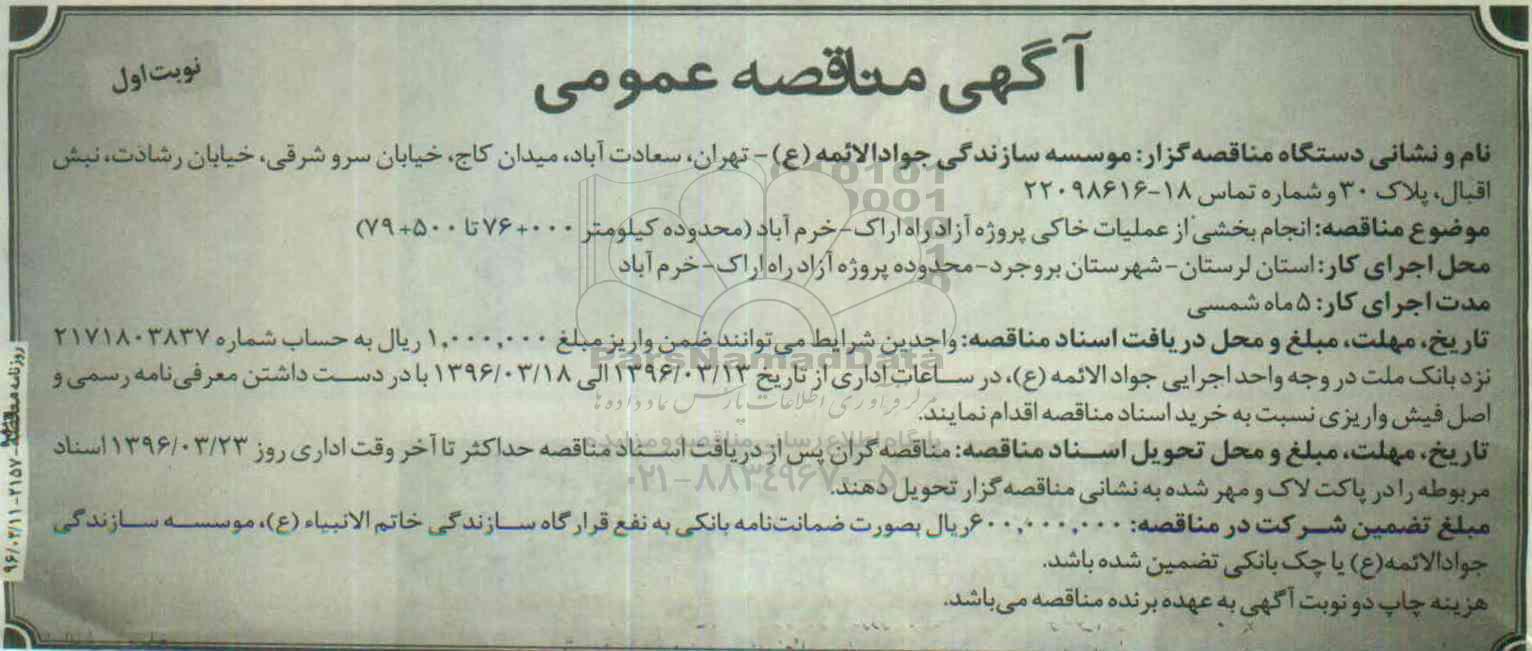 آگهی مناقصه عمومی
نوبت اول
نام و نشانی دستگاه مناقصه گزار: موسسه سازندگی جوادالائمه (ع) - تهران، سعادت آباد، میدان کاج، خیابان سرو شرقی، خیابان رشادت، نبش
اقبال، پلاک ۳۰ و شماره تماس ۱۸-۲۲۰۹۸۶۱۶
موضوع مناقصه: انجام بخشی از عملیات خاکی پروژه آزادراه اراک-خرم آباد (محدوده کیلومتر ۰۰۰+۷۶ تا ۵۰۰+۷۹)
محل اجرای کار: استان لرستان-شهرستان بروجرد-محدوده پروژه آزاد راه اراک-خرم آباد
مدت اجرای کار: ۵ ماه شمسی
تاریخ، مهلت، مبلغ و محل دریافت اسناد مناقصه: واجدین شرایط می‌توانند ضمن واریز مبلغ ۱,۰۰۰,۰۰۰ ریال به حساب شماره ۲۱۷۱۸۰۳۸۳۷
نزد بانک ملت در وجه واحد اجرایی جواد الائمه (ع)، در ساعات اداری از تاریخ ۱۳۹۶/۰۳/۱۳ الی ۱۳۹۶/۰۳/۱۸ با در دست داشتن معرفی‌نامه رسمی و
اصل فیش واریزی نسبت به خرید اسناد مناقصه اقدام نمایند.
تاریخ، مهلت، مبلغ و محل تحویل اسناد مناقصه: مناقصه‌گران پس از دریافت اسناد مناقصه حداکثر تا آخر وقت اداری روز ۱۳۹۶/۰۳/۲۳ اسناد
مربوطه را در پاکت لاک و مهر شده به نشانی مناقصه گزار تحویل دهند.
مبلغ تضمین شرکت در مناقصه: ۶۰۰,۰۰۰,۰۰۰ ریال بصورت ضمانت‌نامه بانکی به نفع قرارگاه سازندگی خاتم الانبیاء (ع)، موسسه سازندگی
جوادالائمه(ع) یا چک بانکی تضمین شده باشد.
هزینه چاپ دو نوبت آگهی به عهده برنده مناقصه می‌باشد.
ParsNamadData
مرکز فرآوری اطلاعات پارس نماد داده ها
پایگاه اطلاع رسانی مناقصه و مزایده
۰۲۱-۸۸۳۴۹۶۷۰-۵